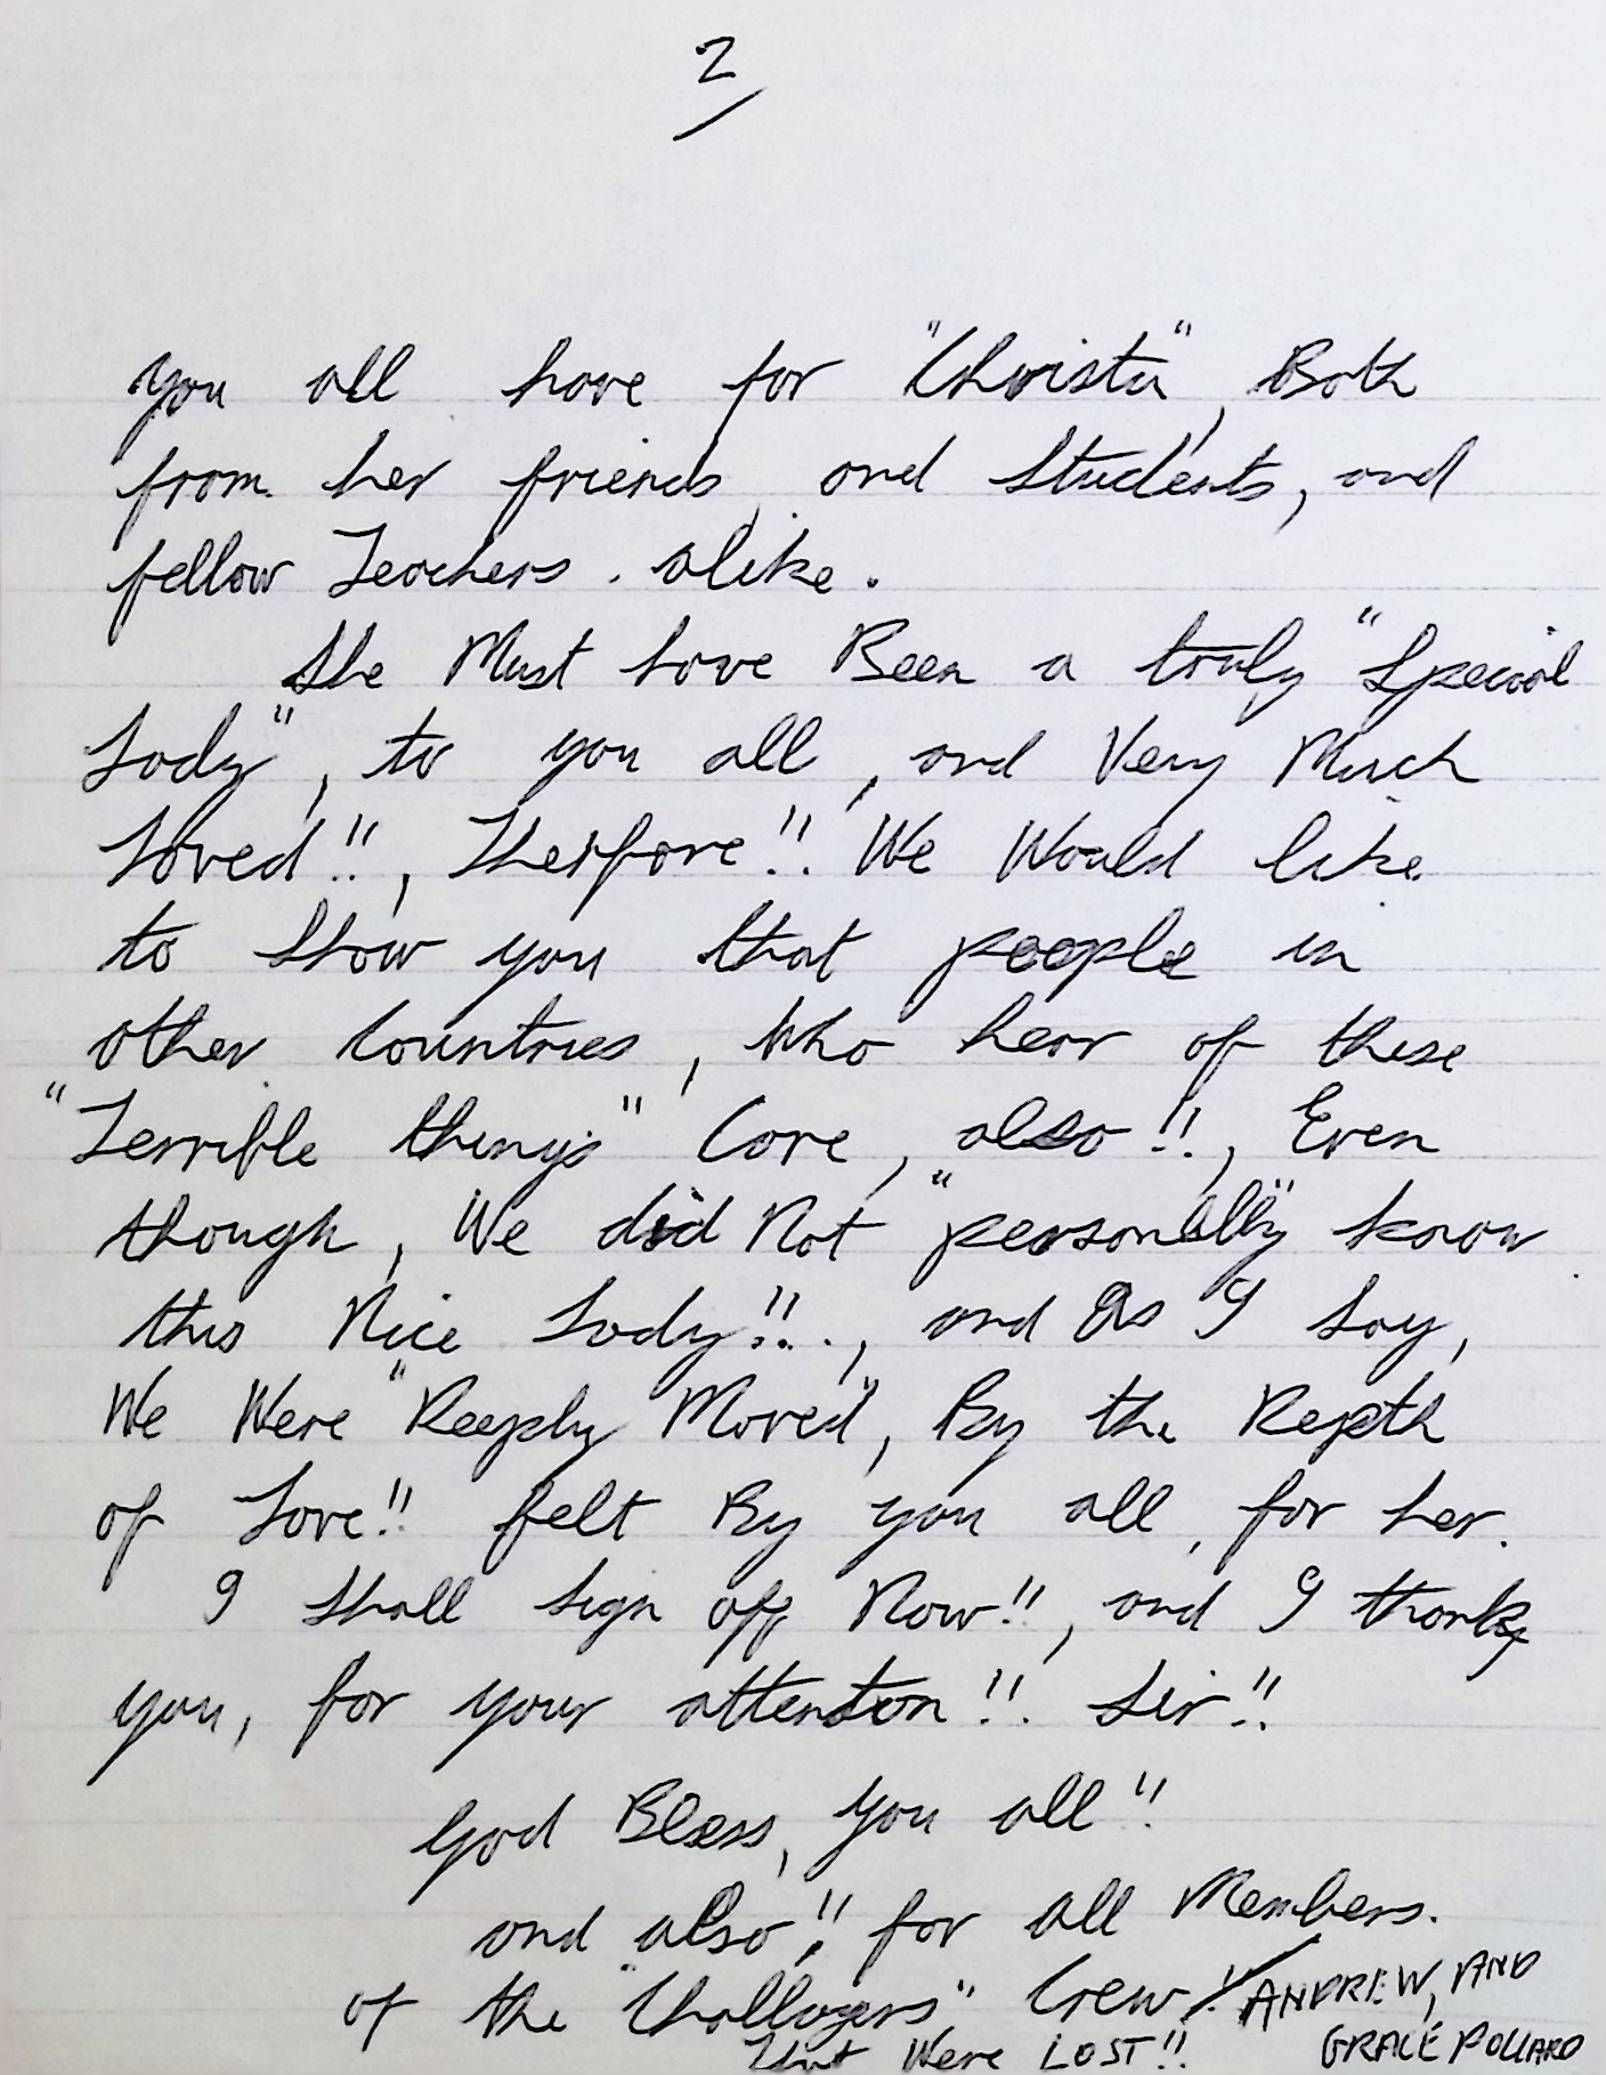 2/
you all have for "Christa", Both
from her friends, and Students, and
fellow Teachers. alike.
She Must have Been a truly "Special
Lady", to you all, and Very Much
Loved!!, Therfore!! We Would like
to Show you that people in
other Countries, Who hear of these
"Terrible things" Care, also!!, Even
though, We did Not "personally" know
this Nice Lady!!., and As I Say,
We Were "Deeply Moved", By the Depth
of Love!! felt By you all, for her.
I Shall Sign off Now!!, and I thank
you, for your attention!! Sir!!
God Bless, you all!!
and also!! for all Members.
of the "Challengers" Crew!!
That Were LOST!!
ANDREW, AND
GRACE POLLARD